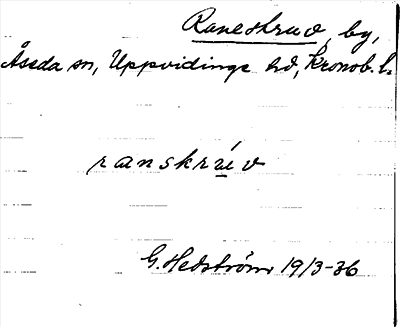 Raneskruv, by,
Åseda sn, Uppvidinge hd, Kronob. l.
ranskrúv
G. Hedström 19/3-36